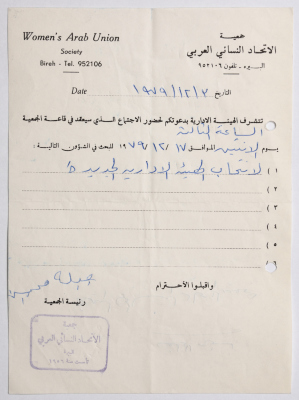 Women's Arab Union
Society
Bireh - Tel. 952106
جمعية
الاتحاد النسائي العربي
البيره - تلفون ٩٥٢١٠٦
Date ١٩٧٩/١٢/٣ التاريخ
تتشرف الهيئة الادارية بدعوتكم لحضور الاجتماع الذي سيعقد في قاعة الجمعية
الساعة الثالثة
يوم الاثنين الموافق ١٧ / ١٢ / ١٩٧٩ للبحث في الشؤون التالية :
١) لانتخاب الهيئة الادارية الجديدة
٢)
٣)
٤)
٥)
٦)
واقبلوا الاحترام
رئيسة الجمعية
جمعية
الاتحاد النسائي العربي